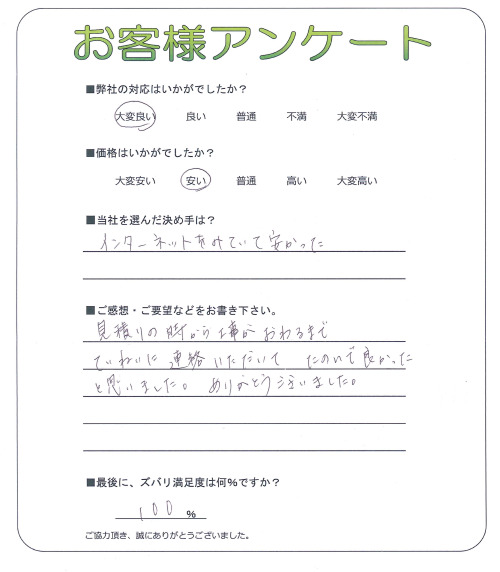 お客様アンケート
■弊社の対応はいかがでしたか？
大変良い 良い 普通 不満 大変不満
■価格はいかがでしたか？
大変安い 安い 普通 高い 大変高い
■当社を選んだ決め手は？
インターネットをみていて安かった
■ご感想・ご要望などをお書き下さい。
見積りの時から工事がおわるまで
ていねいに連絡いただいて たのんで良かった
と思いました。 ありがとう ました。
■最後に、ズバリ満足度は何%ですか？
100 %
ご協力頂き、誠にありがとうございました。